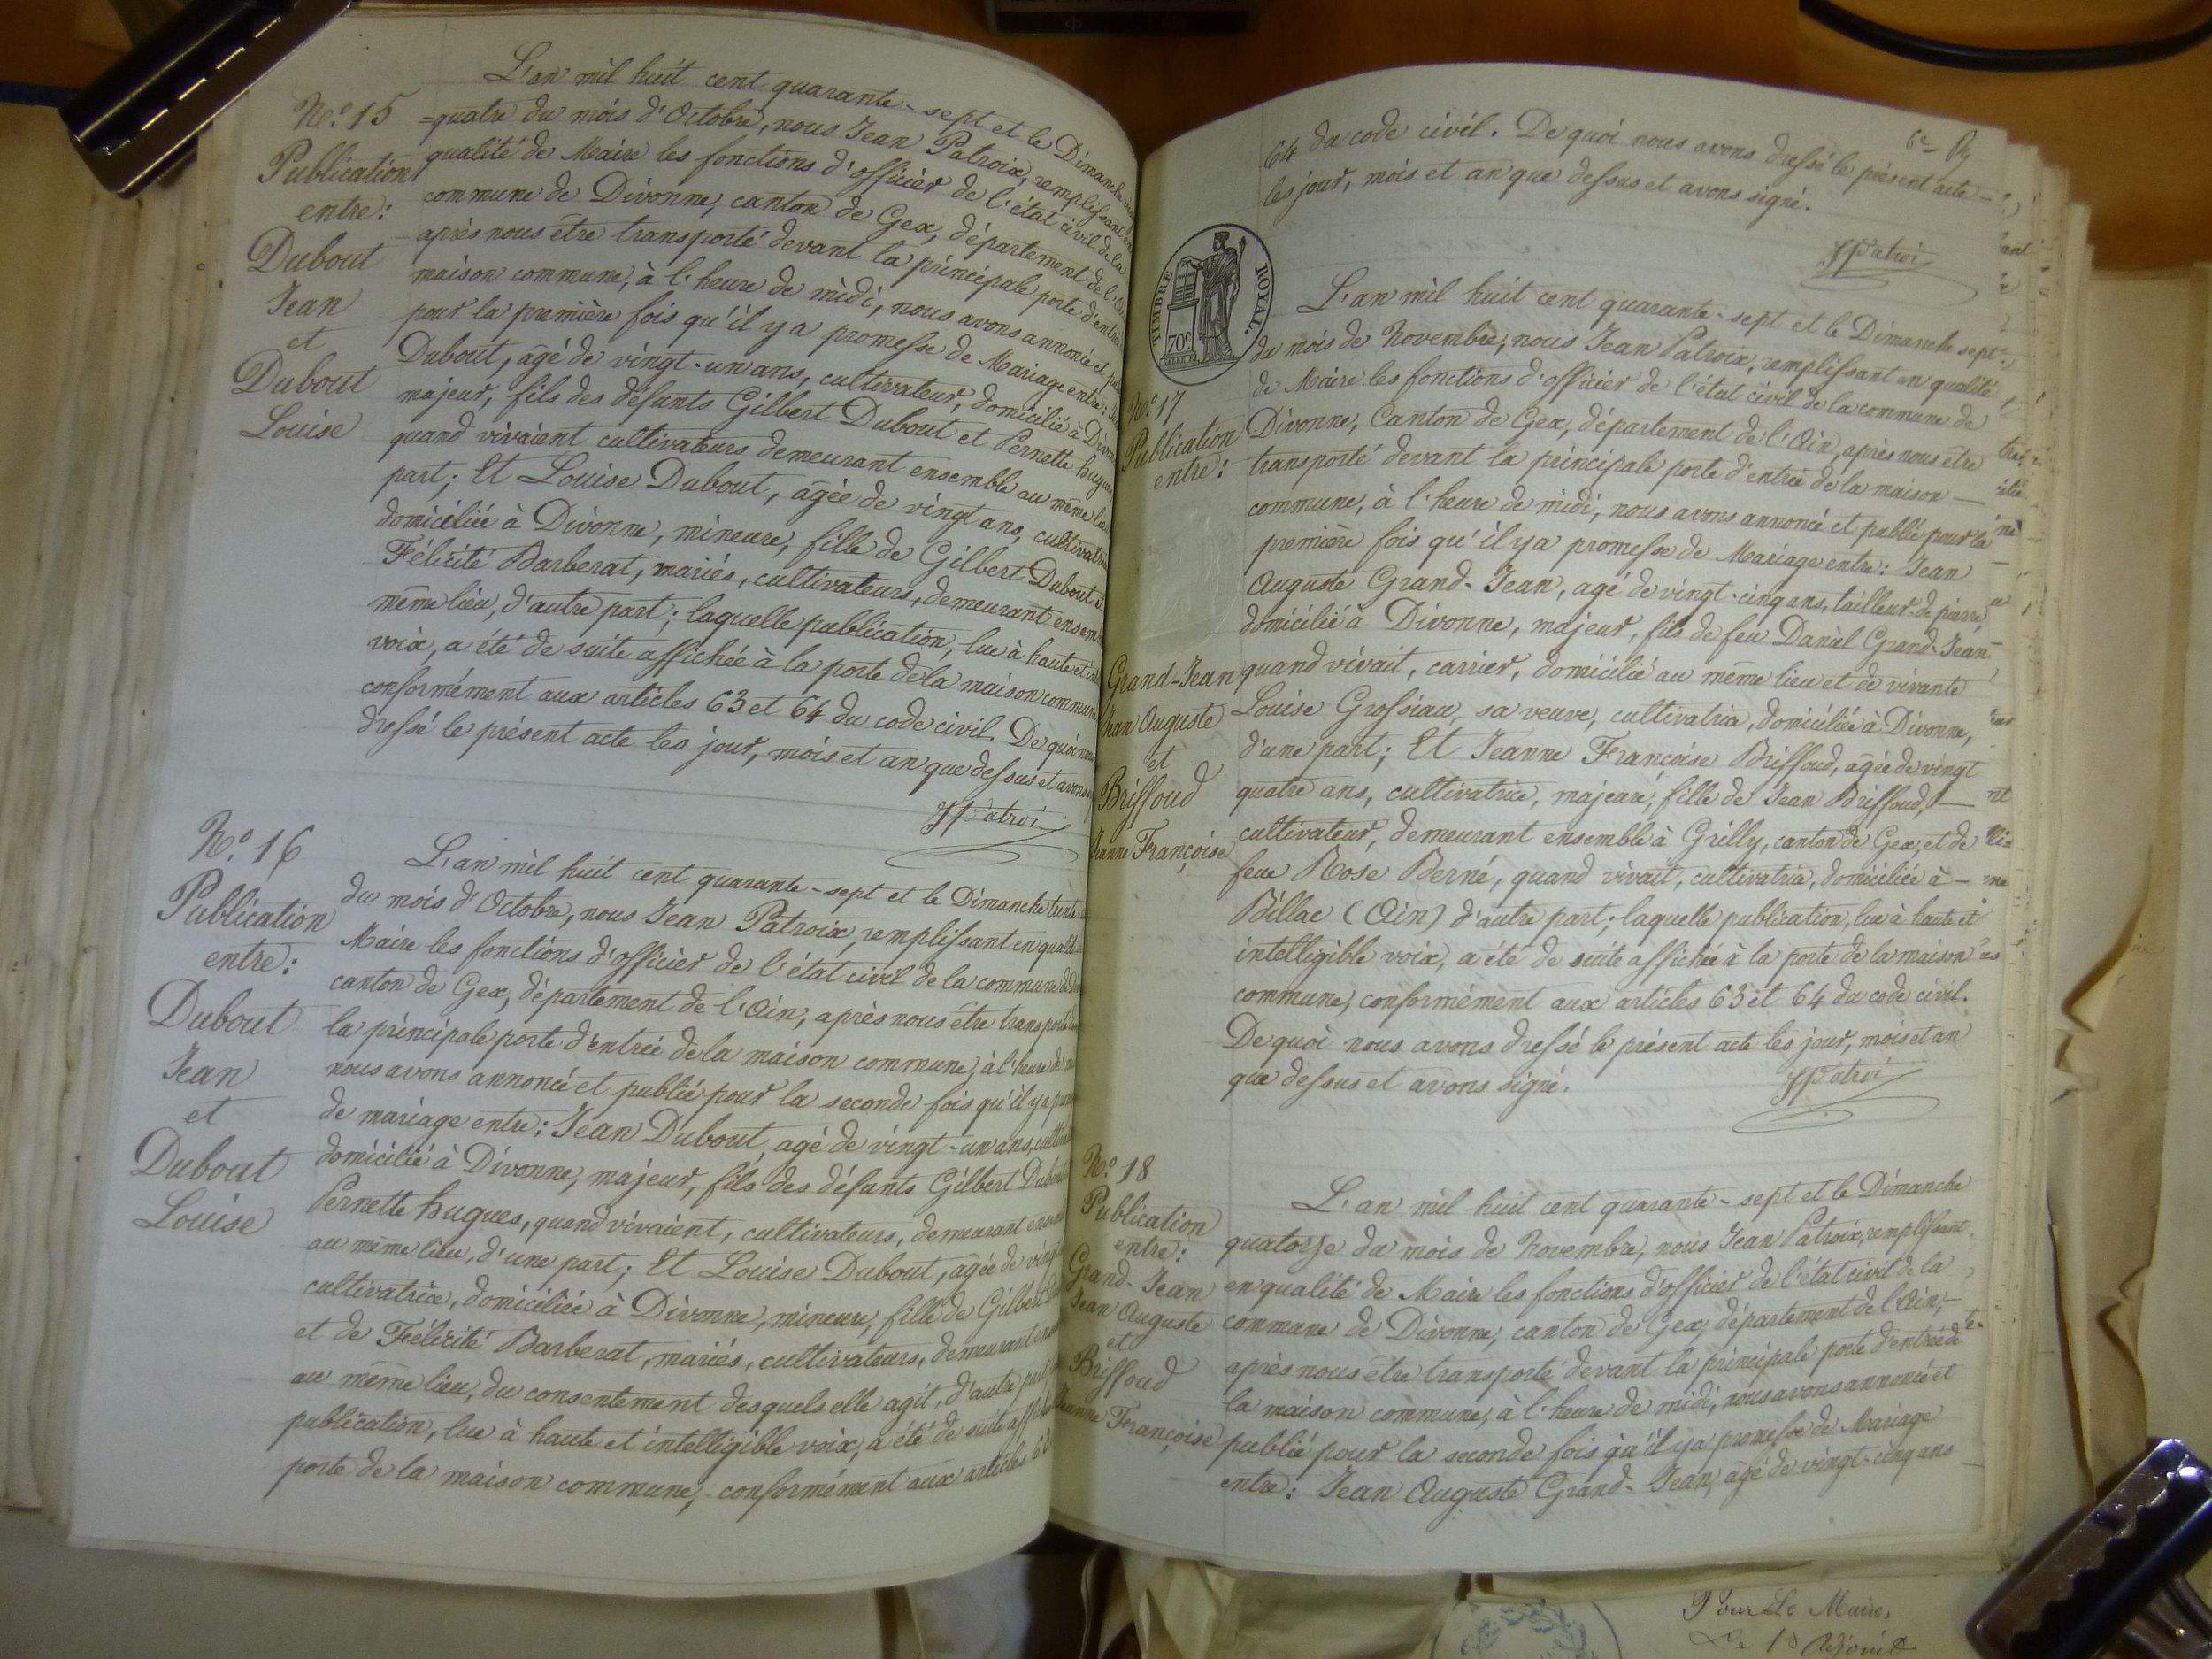 N.o 15
Publication
entre:
Dubout
Jean
et
Dubout
Louise
L'an mil huit cent quarante-sept et le Dimanche
=quatre du mois d'Octobre, nous Jean Patroix, remplissant en
qualité de Maire les fonctions d'officier de l'état civil de la
commune de Divonne, canton de Gex, département de l'Ain
après nous être transporté devant la principale porte d'entrée
maison commune, à l'heure de midi, nous avons annoncé et
pour la première fois qu'il y a promesse de Mariage entre:
Dubout, âgé de vingt-un ans, cultivateur, domicilié à Divonne
majeur, fils des défunts Gilbert Dubout et Pernette hugues
quand vivaient cultivateurs demeurant ensemble au même lieu
part; Et Louise Dubout, âgée de vingt ans, cultivatrice
domiciliée à Divonne, mineure, fille de Gilbert Dubout
Félicité Barberat, mariés, cultivateurs, demeurant
même lieu, d'autre part; laquelle publication, lue à haute et
voix, a été de suite affichée à la porte de la maison commune
conformément aux articles 63 et 64 du code civil. De quoi
dressé le présent acte les jour, mois et an que dessus et avons
JPatroi
N.o 16
Publication
entre:
Dubout
Jean
et
Dubout
Louise
L'an mil huit cent quarante-sept et le Dimanche trente
du mois d'Octobre, nous Jean Patroix, remplissant en qualité
Maire les fonctions d'officier de l'état civil de la commune
canton de Gex, département de l'Ain, après nous être transporté
la principale porte d'entrée de la maison commune, à l'heure de
nous avons annoncé et publié pour la seconde fois qu'il y a
de mariage entre: Jean Dubout, agé de vingt-un ans,
domicilié à Divonne, majeur, fils des défunts Gilbert Dubout
Pernette hugues, quand vivaient, cultivateurs, demeurant
au même lieu, d'une part; Et Louise Dubout, âgée de vingt
cultivatrice, domiciliée à Divonne, mineure, fille de Gilbert
et de Félicité Barberat, mariés, cultivateurs, demeurant
au même lieu, du consentement desquels elle agit, d'autre part
publication, lue à haute et intelligible voix, a été de suite
porte de la maison commune, conformément aux articles 63
6e
64 du code civil. De quoi nous avons dressé le présent acte
les jour, mois et an que dessus et avons signé.
JPatroi
TIMBRE ROYAL.
70c
N.o 17
Publication
entre:
Grand-Jean
Jean Auguste
et
Briffoud
Jeanne Françoise
L'an mil huit cent quarante-sept et le Dimanche sept
du mois de Novembre, nous Jean Patroix, remplissant en qualité
de Maire les fonctions d'officier de l'état civil de la commune de
Divonne, Canton de Gex, département de l'Ain, après nous être
transporté devant la principale porte d'entrée de la maison —
commune, à l'heure de midi, nous avons annoncé et publié pour la
première fois qu'il y a promesse de Mariage entre: Jean
Auguste Grand-Jean, agé de vingt-cinq ans, tailleur de pierre
domicilié à Divonne, majeur, fils de feu Daniel Grand-Jean
quand vivait, carrier, domicilié au même lieu et de vivante
Louise Grossiau, sa veuve, cultivatrice, domiciliée à Divonne,
d'une part; Et Jeanne Françoise Briffoud, âgée de vingt
quatre ans, cultivatrice, majeure, fille de Jean Briffoud, —
cultivateur, demeurant ensemble à Grilly, canton de Gex, et de
feue Rose Berné, quand vivait, cultivatrice, domiciliée à —
Billac (Ain) d'autre part; laquelle publication, lue à haute et
intelligible voix, a été de suite affichée à la porte de la maison
commune, conformément aux articles 63 et 64 du code civil.
De quoi nous avons dressé le présent acte les jour, mois et an
que dessus et avons signé.
JPatroi
N.o 18
Publication
entre:
Grand-Jean
Jean Auguste
et
Briffoud
Jeanne Françoise
L'an mil huit cent quarante-sept et le Dimanche
quatorze du mois de Novembre, nous Jean Patroix, remplissant
en qualité de Maire les fonctions d'officier de l'état civil de la
commune de Divonne, canton de Gex, département de l'Ain, —
après nous être transporté devant la principale porte d'entrée de
la maison commune, à l'heure de midi, nous avons annoncé et
publié pour la seconde fois qu'il y a promesse de Mariage
entre: Jean Auguste Grand-Jean, âgé de vingt-cinq ans
Pour Le Maire,